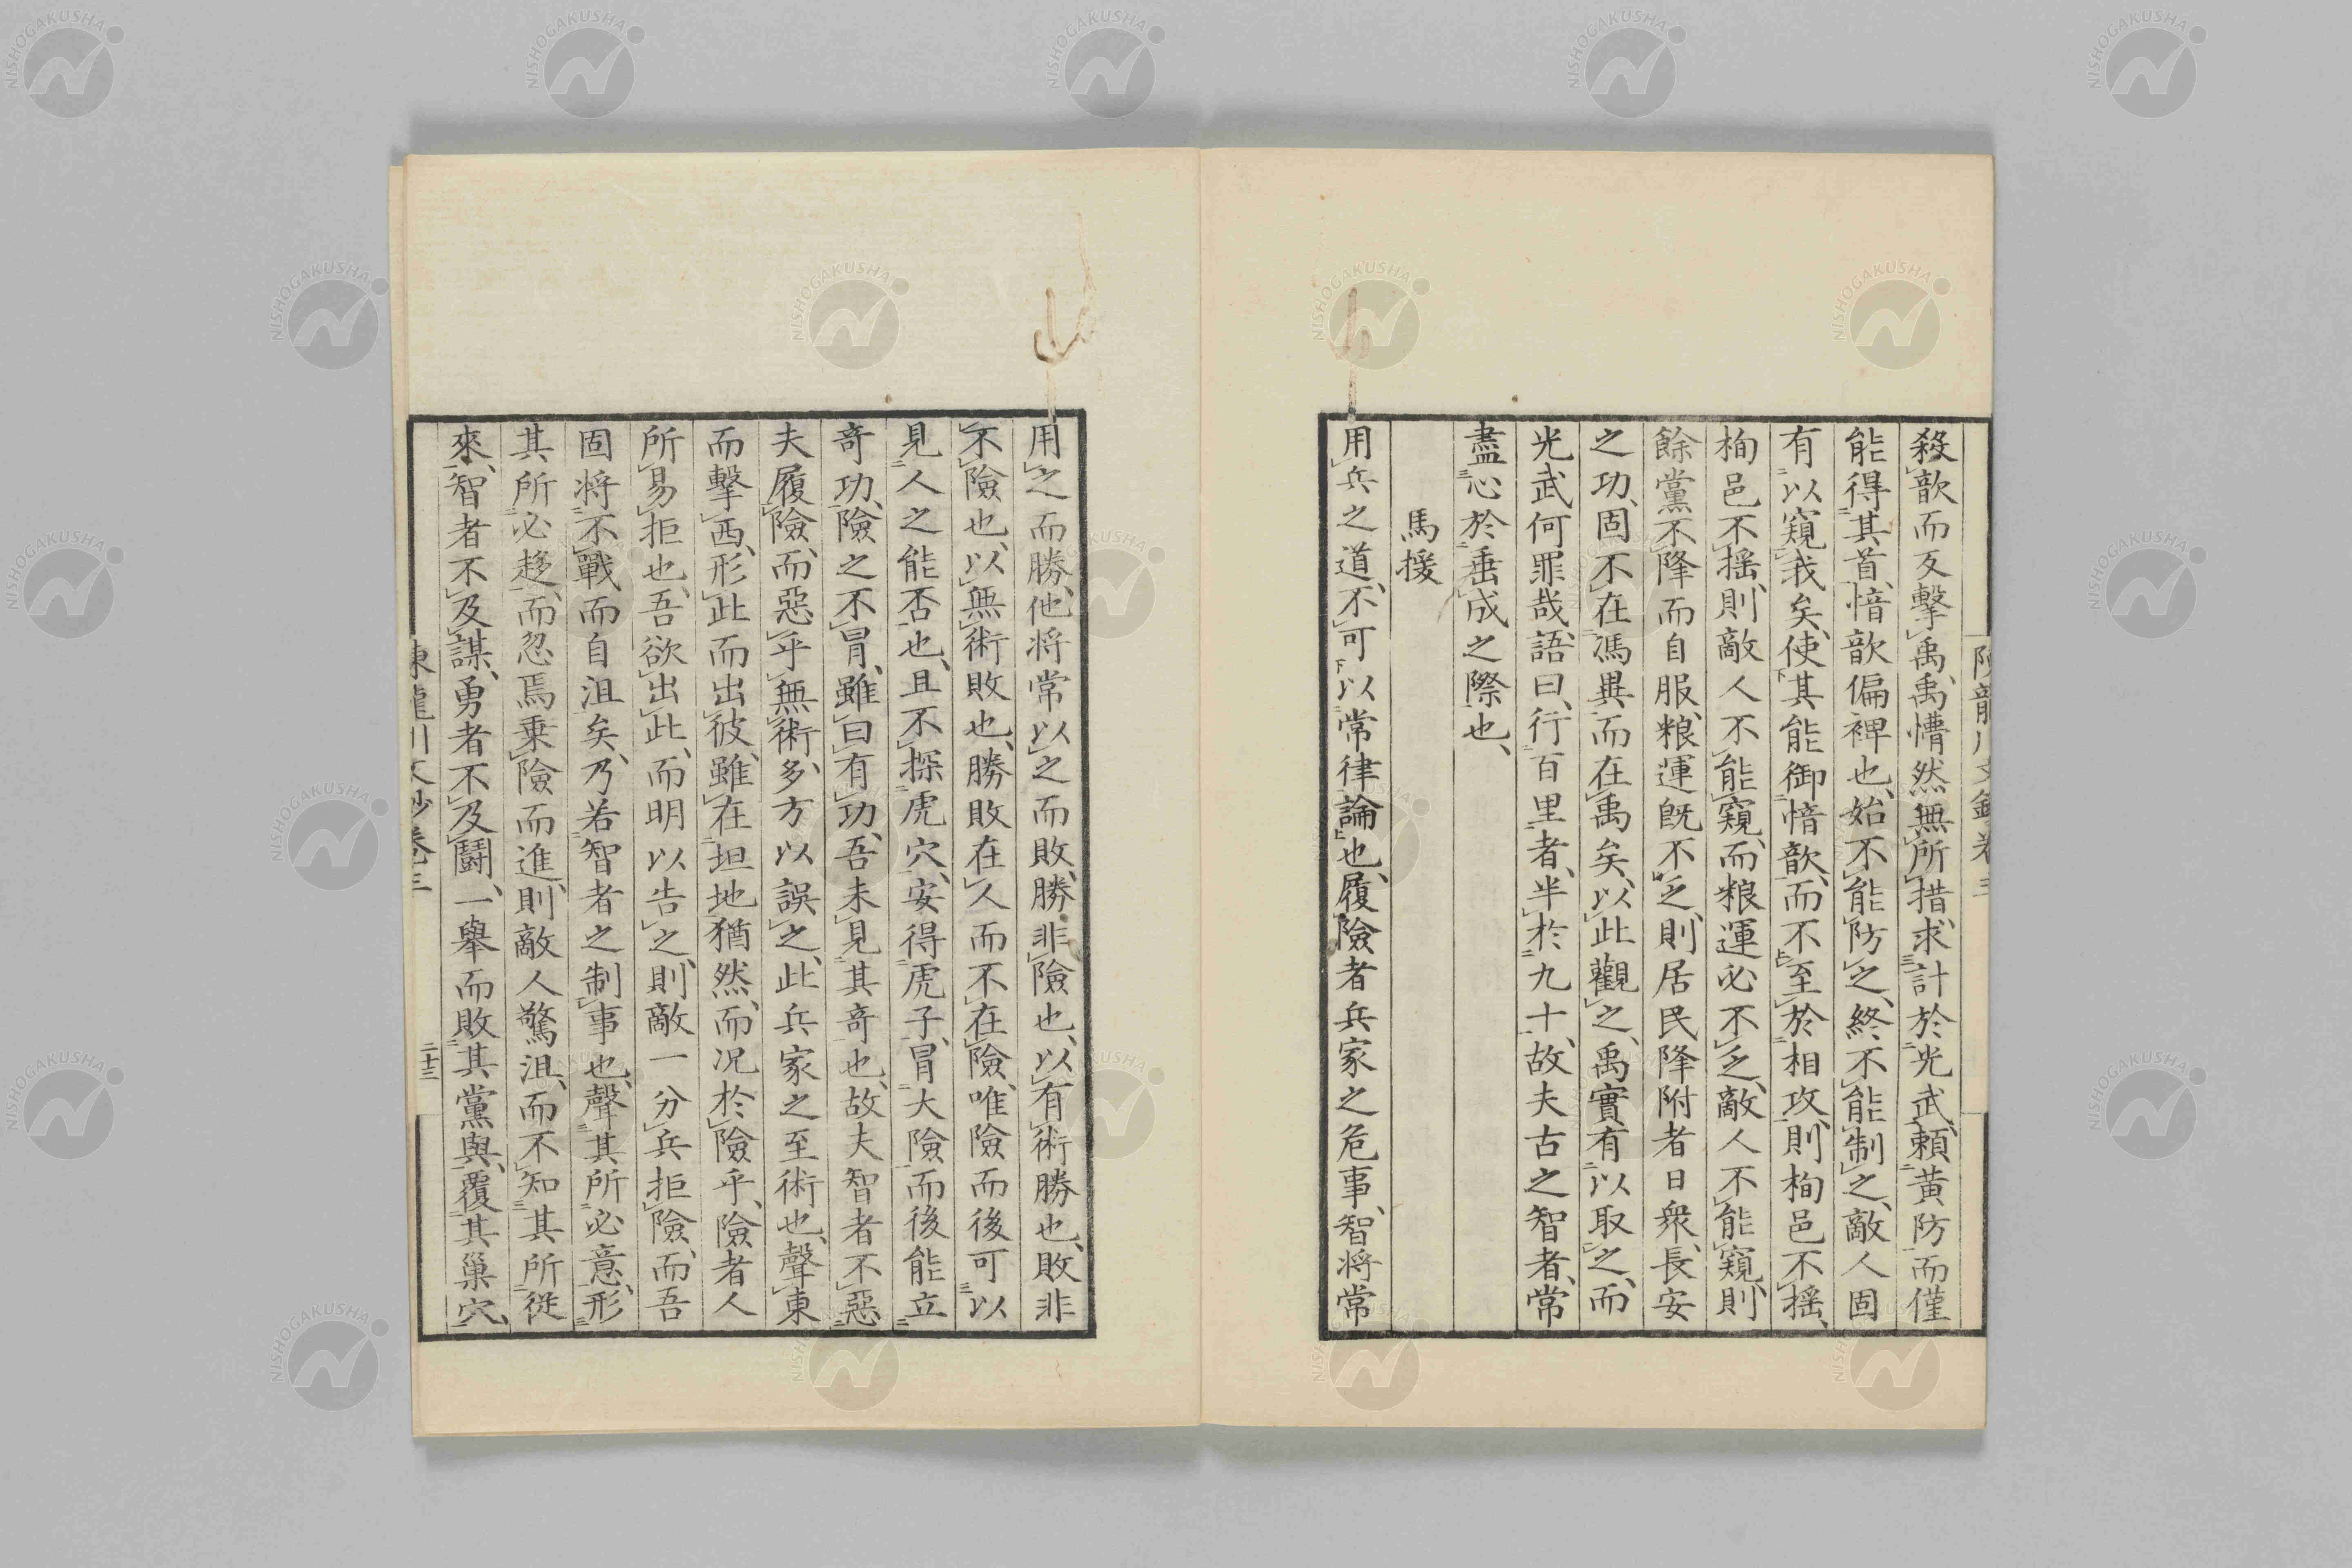 殺歆而反擊禹、禹懵然無所措、求計於光武、頼黄防而僅
能得其首、愔歆偏裨也、始不能防之、終不能制之、敵人固
有以窺我矣、使其能御愔歆、而不至於相攻、則栒邑不揺、
栒邑不揺、則敵人不能窺、而粮運必不乏、敵人不能窺、則
餘黨不降而自服、粮運既不乏、則居民降附者日衆、長安
之功、固不在馮異、而在禹矣、以此觀之、禹實有以取之、而
光武何罪哉、語曰、行百里者、半於九十、故夫古之智者、常
盡心於垂成之際也、
馬援
用兵之道、不可以常律論也、履險者兵家之危事、智将常
用之而勝、他将常以之而敗、勝非險也、以有術勝也、敗非
不險也、以無術敗也、勝敗在人而不在險、唯險而後可以
見人之能否也、且不探虎穴、安得虎子、冒大險而後能立
奇功、險之不冒、雖曰有功、吾未見其奇也、故夫智者不惡
夫履險、而惡乎無術、多方以誤之、此兵家之至術也、聲東
而擊西、形此而出彼、雖在坦地猶然、而况於險乎、險者人
所易拒也、吾欲出此、而明以告之、則敵一分兵拒險、而吾
固将不戰而自沮矣、乃若智者之制事也、聲其所必意、形
其所必趍、而忽焉乗險而進、則敵人驚沮、而不知其所従
來、智者不及謀、勇者不及鬪、一舉而敗其黨與、覆其巢穴、
陳龍川文鈔卷三
二十三